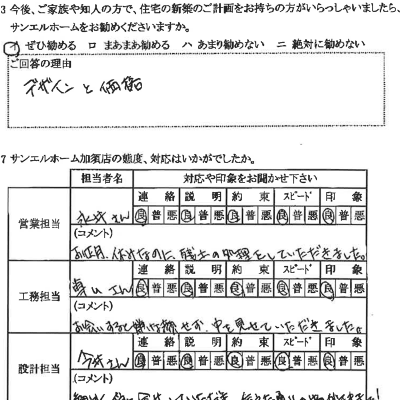 3 今後、ご家族や知人の方で、住宅の新築のご計画をお持ちの方がいらっしゃいましたら、
サンエルホームをお勧めくださいますか。
イ ぜひ勧める ロ まあまあ勧める ハ あまり勧めない ニ 絶対に勧めない
ご回答の理由
デザインと価格
7 サンエルホーム加須店の態度、対応はいかがでしたか。
担当者名 対応や印象をお聞かせ下さい
連絡 説明 約束 スピード 印象
営業担当 さん 良 普 悪 良 普 悪 良 普 悪 良 普 悪 良 普 悪
(コメント)
お正月、休みなのに、残土の処理をしていただきました。
連絡 説明 約束 スピード 印象
工務担当 さん 良 普 悪 良 普 悪 良 普 悪 良 普 悪 良 普 悪
(コメント)
見せていただきました。
連絡 説明 約束 スピード 印象
設計担当 さん 良 普 悪 良 普 悪 良 普 悪 良 普 悪 良 普 悪
(コメント)